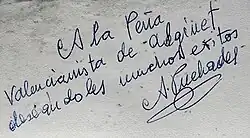 A la Peña
Valencianista de Alginet
deseandoles muchos exitos
A. Puchades